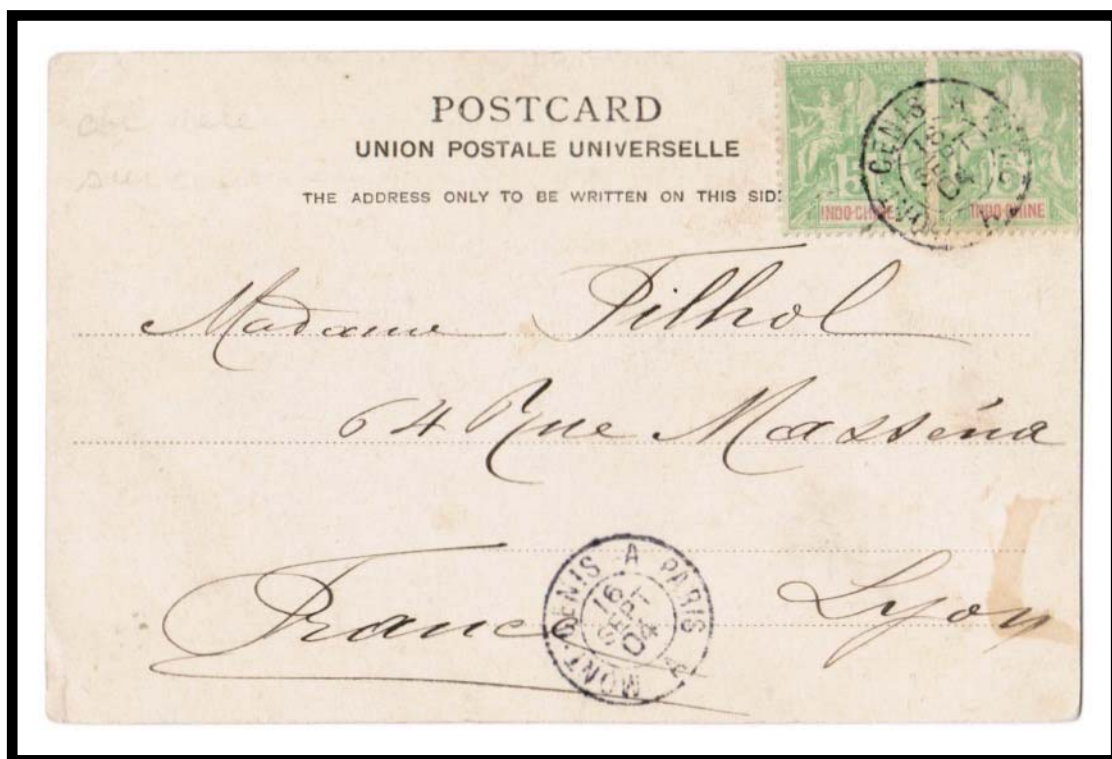 POSTCARD
UNION POSTALE UNIVERSELLE
THE ADDRESS ONLY TO BE WRITTEN ON THIS SID
5 5
INDO-CHINE INDO-CHINE
Madame Filhol
64 Rue Masséna
France Lyon
MONT-CENIS A PARIS
16
SEPT
04